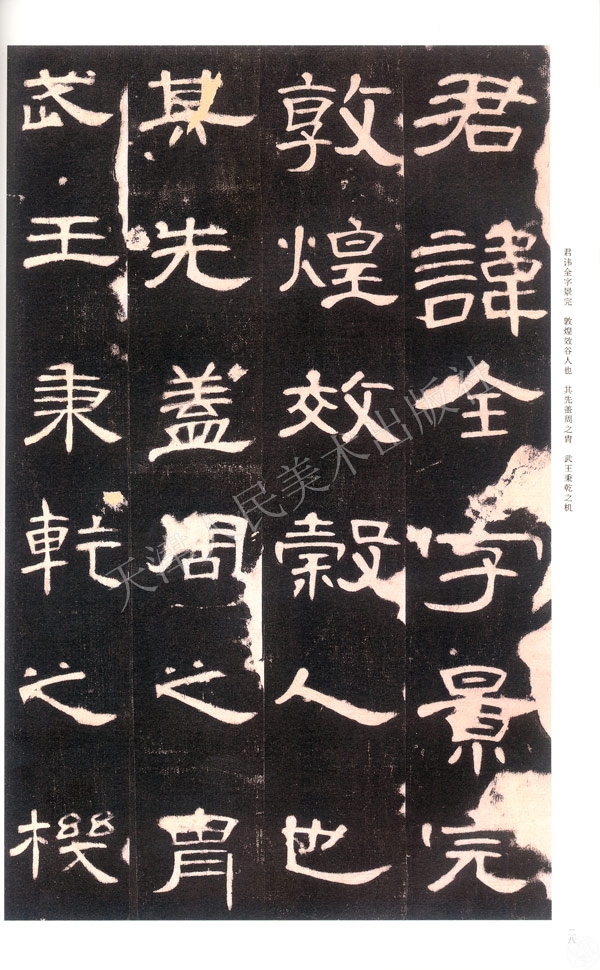 君諱全字景完
敦煌效穀人也
其先蓋周之胄
武王秉乾之機
君讳全字景完 敦煌效谷人也 其先盖周之胄 武王秉乾之机
二八
天津人民美术出版社